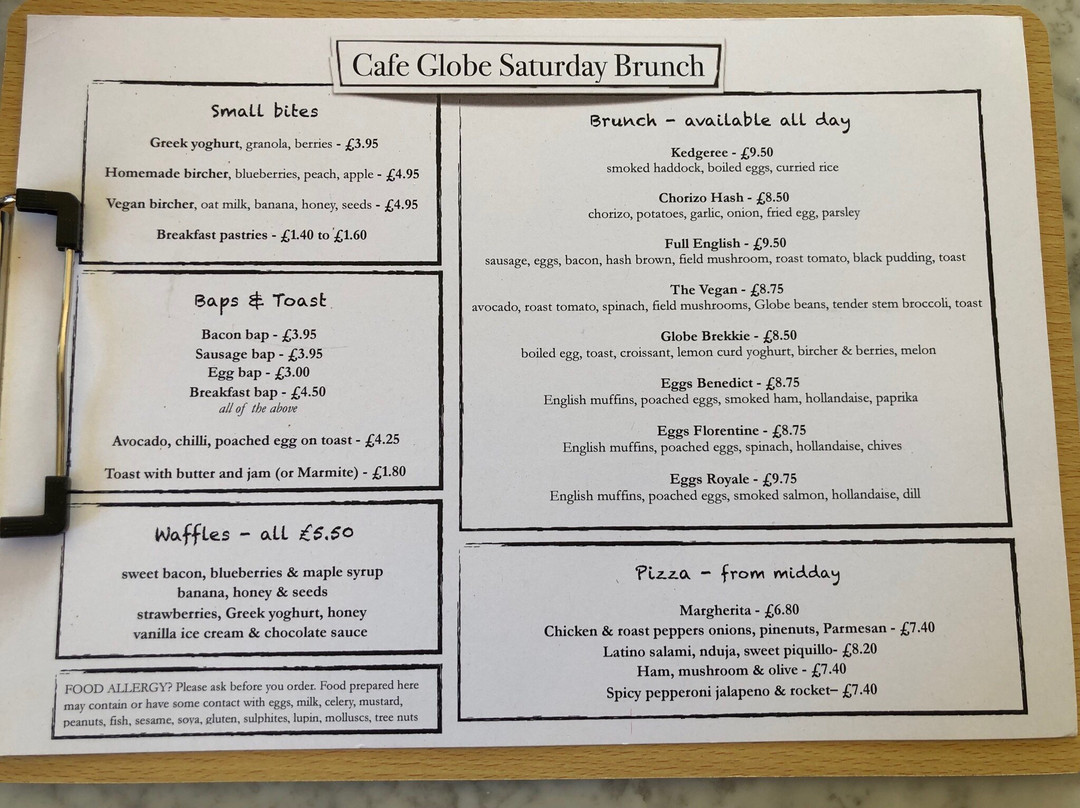 Cafe Globe Saturday Brunch
Small bites
Greek yoghurt, granola, berries - £3.95
Homemade bircher, blueberries, peach, apple - £4.95
Vegan bircher, oat milk, banana, honey, seeds - £4.95
Breakfast pastries - £1.40 to £1.60
Baps & Toast
Bacon bap - £3.95
Sausage bap - £3.95
Egg bap - £3.00
Breakfast bap - £4.50
all of the above
Avocado, chilli, poached egg on toast - £4.25
Toast with butter and jam (or Marmite) - £1.80
Waffles - all £5.50
sweet bacon, blueberries & maple syrup
banana, honey & seeds
strawberries, Greek yoghurt, honey
vanilla ice cream & chocolate sauce
FOOD ALLERGY? Please ask before you order. Food prepared here
may contain or have some contact with eggs, milk, celery, mustard,
peanuts, fish, sesame, soya, gluten, sulphites, lupin, molluscs, tree nuts
Brunch - available all day
Kedgeree - £9.50
smoked haddock, boiled eggs, curried rice
Chorizo Hash - £8.50
chorizo, potatoes, garlic, onion, fried egg, parsley
Full English - £9.50
sausage, eggs, bacon, hash brown, field mushroom, roast tomato, black pudding, toast
The Vegan - £8.75
avocado, roast tomato, spinach, field mushrooms, Globe beans, tender stem broccoli, toast
Globe Brekkie - £8.50
boiled egg, toast, croissant, lemon curd yoghurt, bircher & berries, melon
Eggs Benedict - £8.75
English muffins, poached eggs, smoked ham, hollandaise, paprika
Eggs Florentine - £8.75
English muffins, poached eggs, spinach, hollandaise, chives
Eggs Royale - £9.75
English muffins, poached eggs, smoked salmon, hollandaise, dill
Pizza - from midday
Margherita - £6.80
Chicken & roast peppers onions, pinenuts, Parmesan - £7.40
Latino salami, nduja, sweet piquillo- £8.20
Ham, mushroom & olive - £7.40
Spicy pepperoni jalapeno & rocket– £7.40